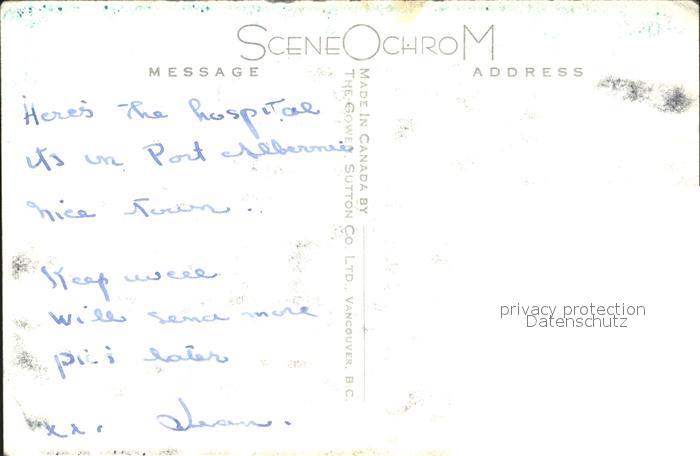 SCENEOCHROM
MESSAGE
ADDRESS
Here's the hospital
it's in Port Albernie
nice town.
Keep well
will send more
pic's later
xx. Jean.
MADE IN CANADA BY
THE GOWEN SUTTON CO. LTD., VANCOUVER, B.C.
privacy protection
Datenschutz